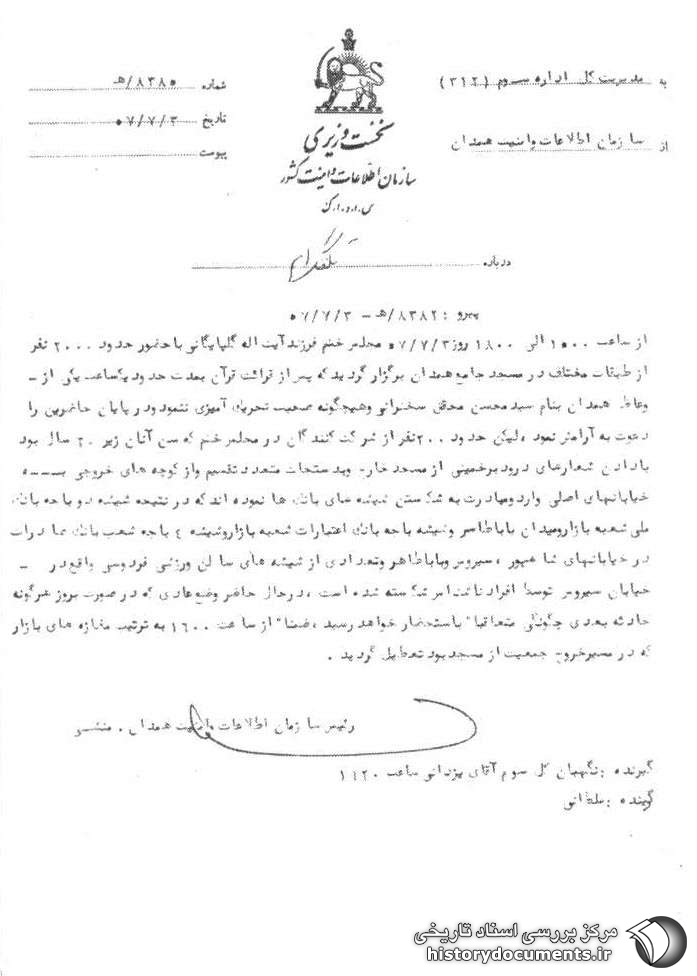 به مدیریت کل اداره سوم (۳۱۲)
از سازمان اطلاعات و امنیت همدان
نخست وزیری
سازمان اطلاعات و امنیت کشور
س.ا.و.ا.ک
شماره ۸۳۸۵/هـ
تاریخ ۵۷/۷/۳
پیوست
درباره تلفنگرام
پیرو : ۸۳۸۲/هـ - ۵۷/۷/۳
از ساعت ۱۵۰۰ الی ۱۸۰۰ روز ۵۷/۷/۳ مجلس ختم فرزند آیت اله گلپایگانی با حضور حدود ۲۰۰۰ نفر
از طبقات مختلف در مسجد جامع همدان برگزار گردید که پس از قرائت قرآن بمدت حدود یکساعت یکی از -
وعاظ همدان بنام سید محسن محقق سخنرانی و هیچگونه صحبت تحریک آمیزی ننمود و در پایان حاضرین را
دعوت به آرامش نمود ، لیکن حدود ۲۰۰ نفر از شرکت کنندگان در مجلس ختم که سن آنان زیر ۲۰ سال بود
با دادن شعارهای درود بر خمینی از مسجد خارج و بدستجات متعدد تقسیم و از کوچه های خروجی بـــه
خیابانهای اصلی وارد و مبادرت به شکستن شیشه های بانک ها نموده اند که در نتیجه شیشه دو باجه بانک
ملی شعبه بازار و میدان باباطاهر و شیشه باجه بانک اعتبارات شعبه بازار و شیشه ٤ باجه شعب بانک صادرات
در خیابانهای شاهپور ، سیروس و باباطاهر و تعدادی از شیشه های سالن ورزشی فردوسی واقع در -
خیابان سیروس توسط افراد ناشناس شکسته شده است ، در حال حاضر وضع عادی که در صورت بروز هرگونه
حادثه بعدی چگونگی متعاقبا" باستحضار خواهد رسید ، ضمنا" از ساعت ۱۶۰۰ به ترتیب مغازه های بازار
که در مسیر خروج جمعیت از مسجد بود تعطیل گردید .
رئیس سازمان اطلاعات و امنیت همدان .
گیرنده : نگهبان کل سوم آقای یزدانی ساعت ۱۹۲۰
گوینده : سلطانی
مرکز بررسی اسناد تاریخی
historydocuments.ir